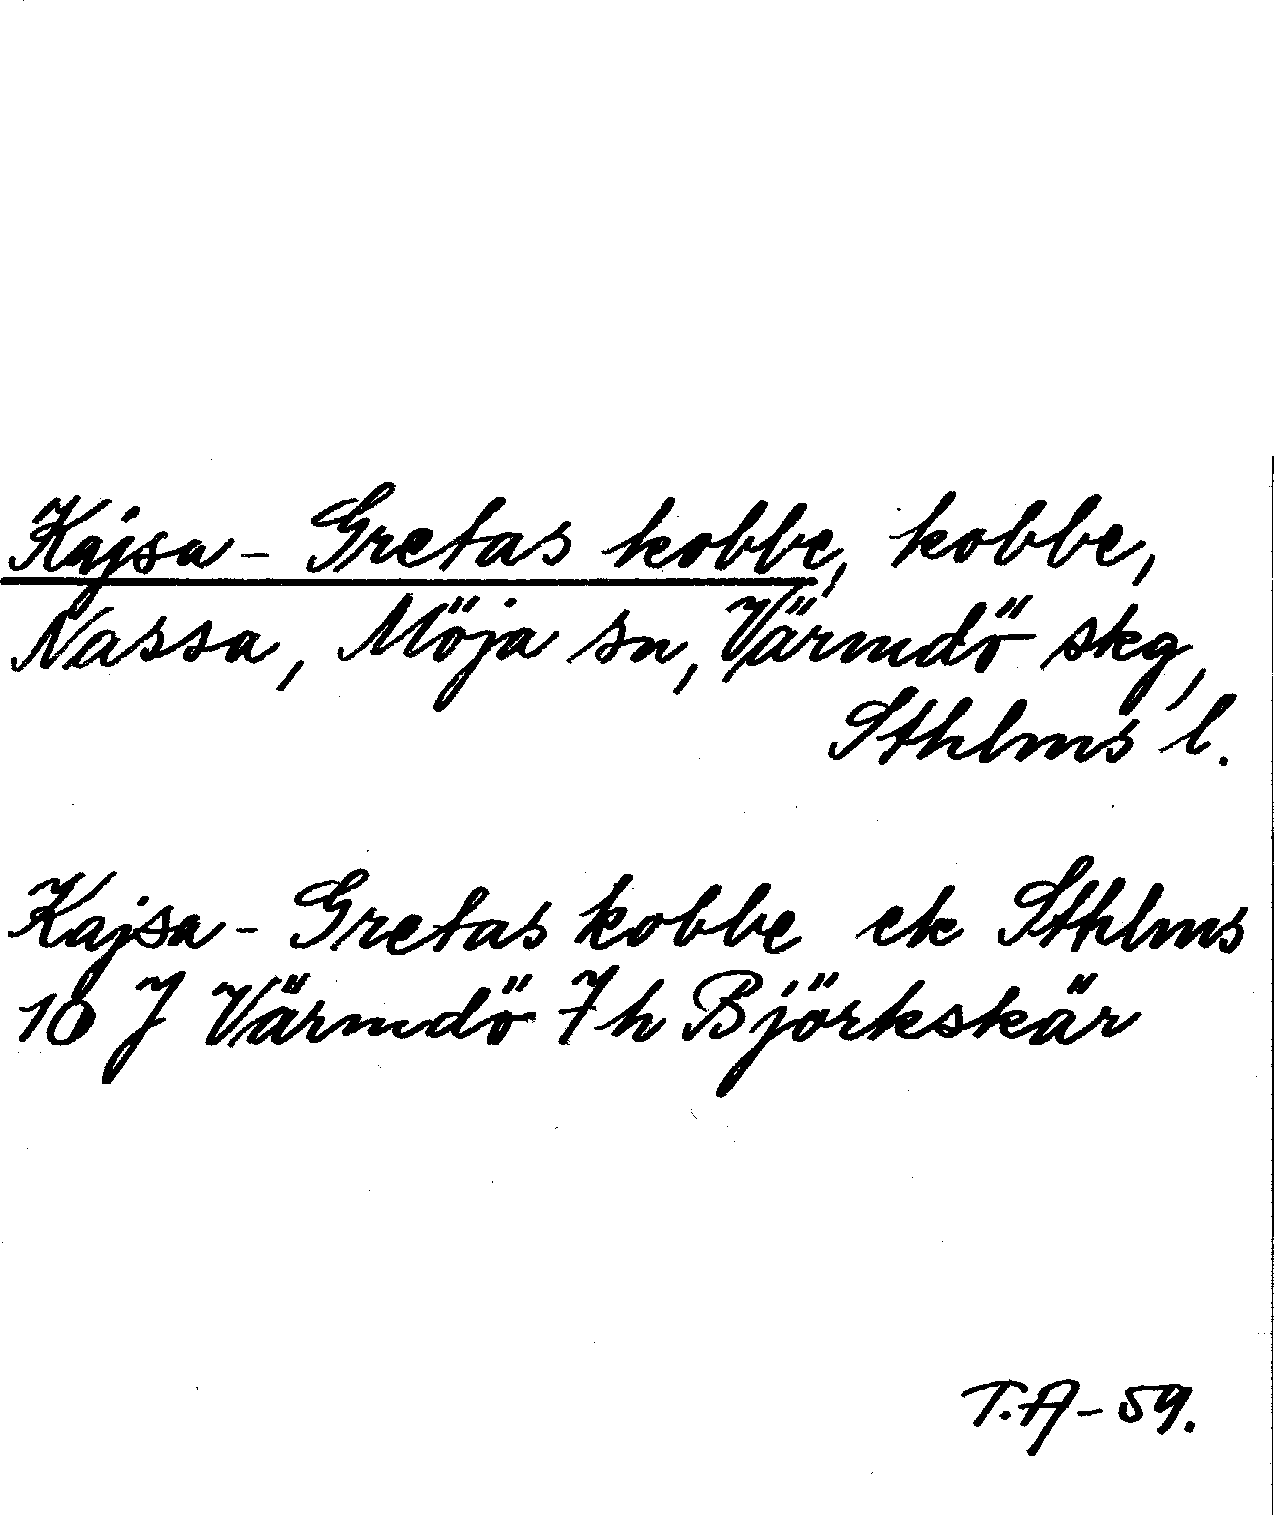 Kajsa-Gretas kobbe, kobbe,
Nassa, Möja sn, Värmdö skg,
Sthlms l.
Kajsa-Gretas kobbe ek Sthlms
10 J Värmdö 7h Björkskär
T.A-59.